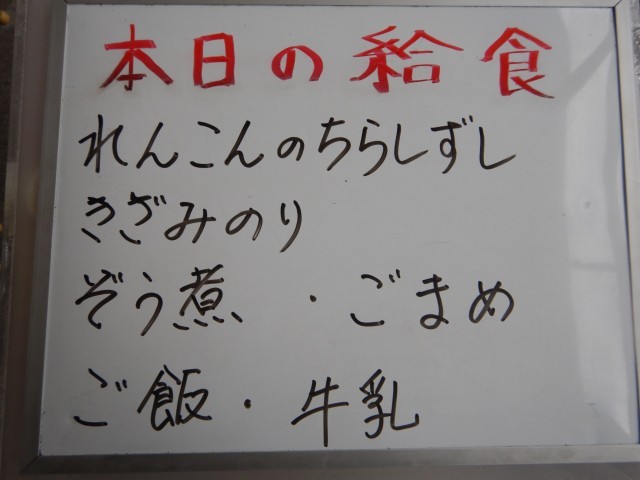 本日の給食
れんこんのちらしずし
きざみのり
ぞう煮・ごまめ
ご飯・牛乳